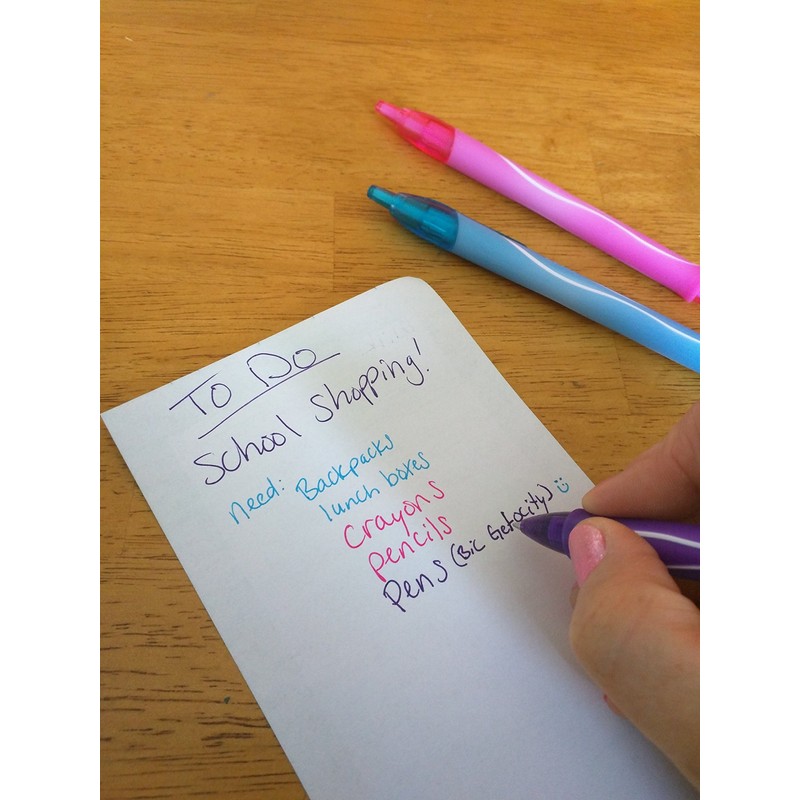 To Do
School Shopping!
need: Backpacks
lunch boxes
Crayons
pencils
Pens (Bic Getocity) ü